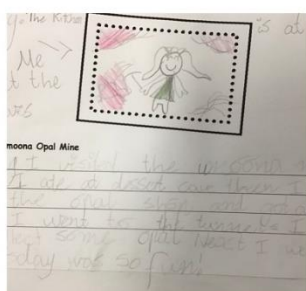 The Kitche
is at
Me
t the
moona Opal Mine
I visited the umoona
I ate at dessot cave then I
the opal shop and
I went to the tunnels I
some opal Next I we
oday was so fun!